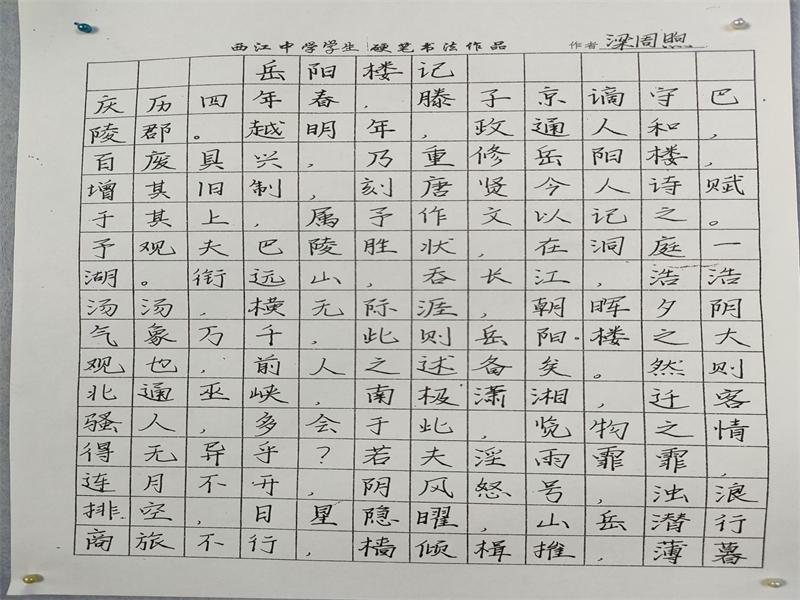 西江中学学生硬笔书法作品 作者 梁周煦
岳阳楼记
庆历四年春，滕子京谪守巴
陵郡。越明年，政通人和，
百废具兴，乃重修岳阳楼，
增其旧制，刻唐贤今人诗赋
于其上，属予作文以记之。
予观夫巴陵胜状，在洞庭一
湖。衔远山，吞长江，浩浩
汤汤，横无际涯，朝晖夕阴
气象万千，此则岳阳楼之大
观也，前人之述备矣。然则
北通巫峡，南极潇湘，迁客
骚人，多会于此，览物之情
得无异乎？若夫淫雨霏霏，
连月不开，阴风怒号，浊浪
排空，日星隐曜，山岳潜行
商旅不行，樯倾楫摧，薄暮